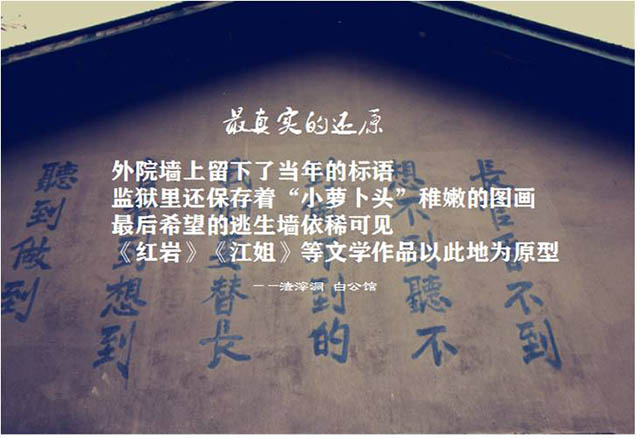 最真实的还原
外院墙上留下了当年的标语
监狱里还保存着“小萝卜头”稚嫩的图画
最后希望的逃生墙依稀可见
《红岩》《江姐》等文学作品以此地为原型
——渣滓洞 白公馆
長官看不到
想不到聽不
到的
替長
想到
聽到做到